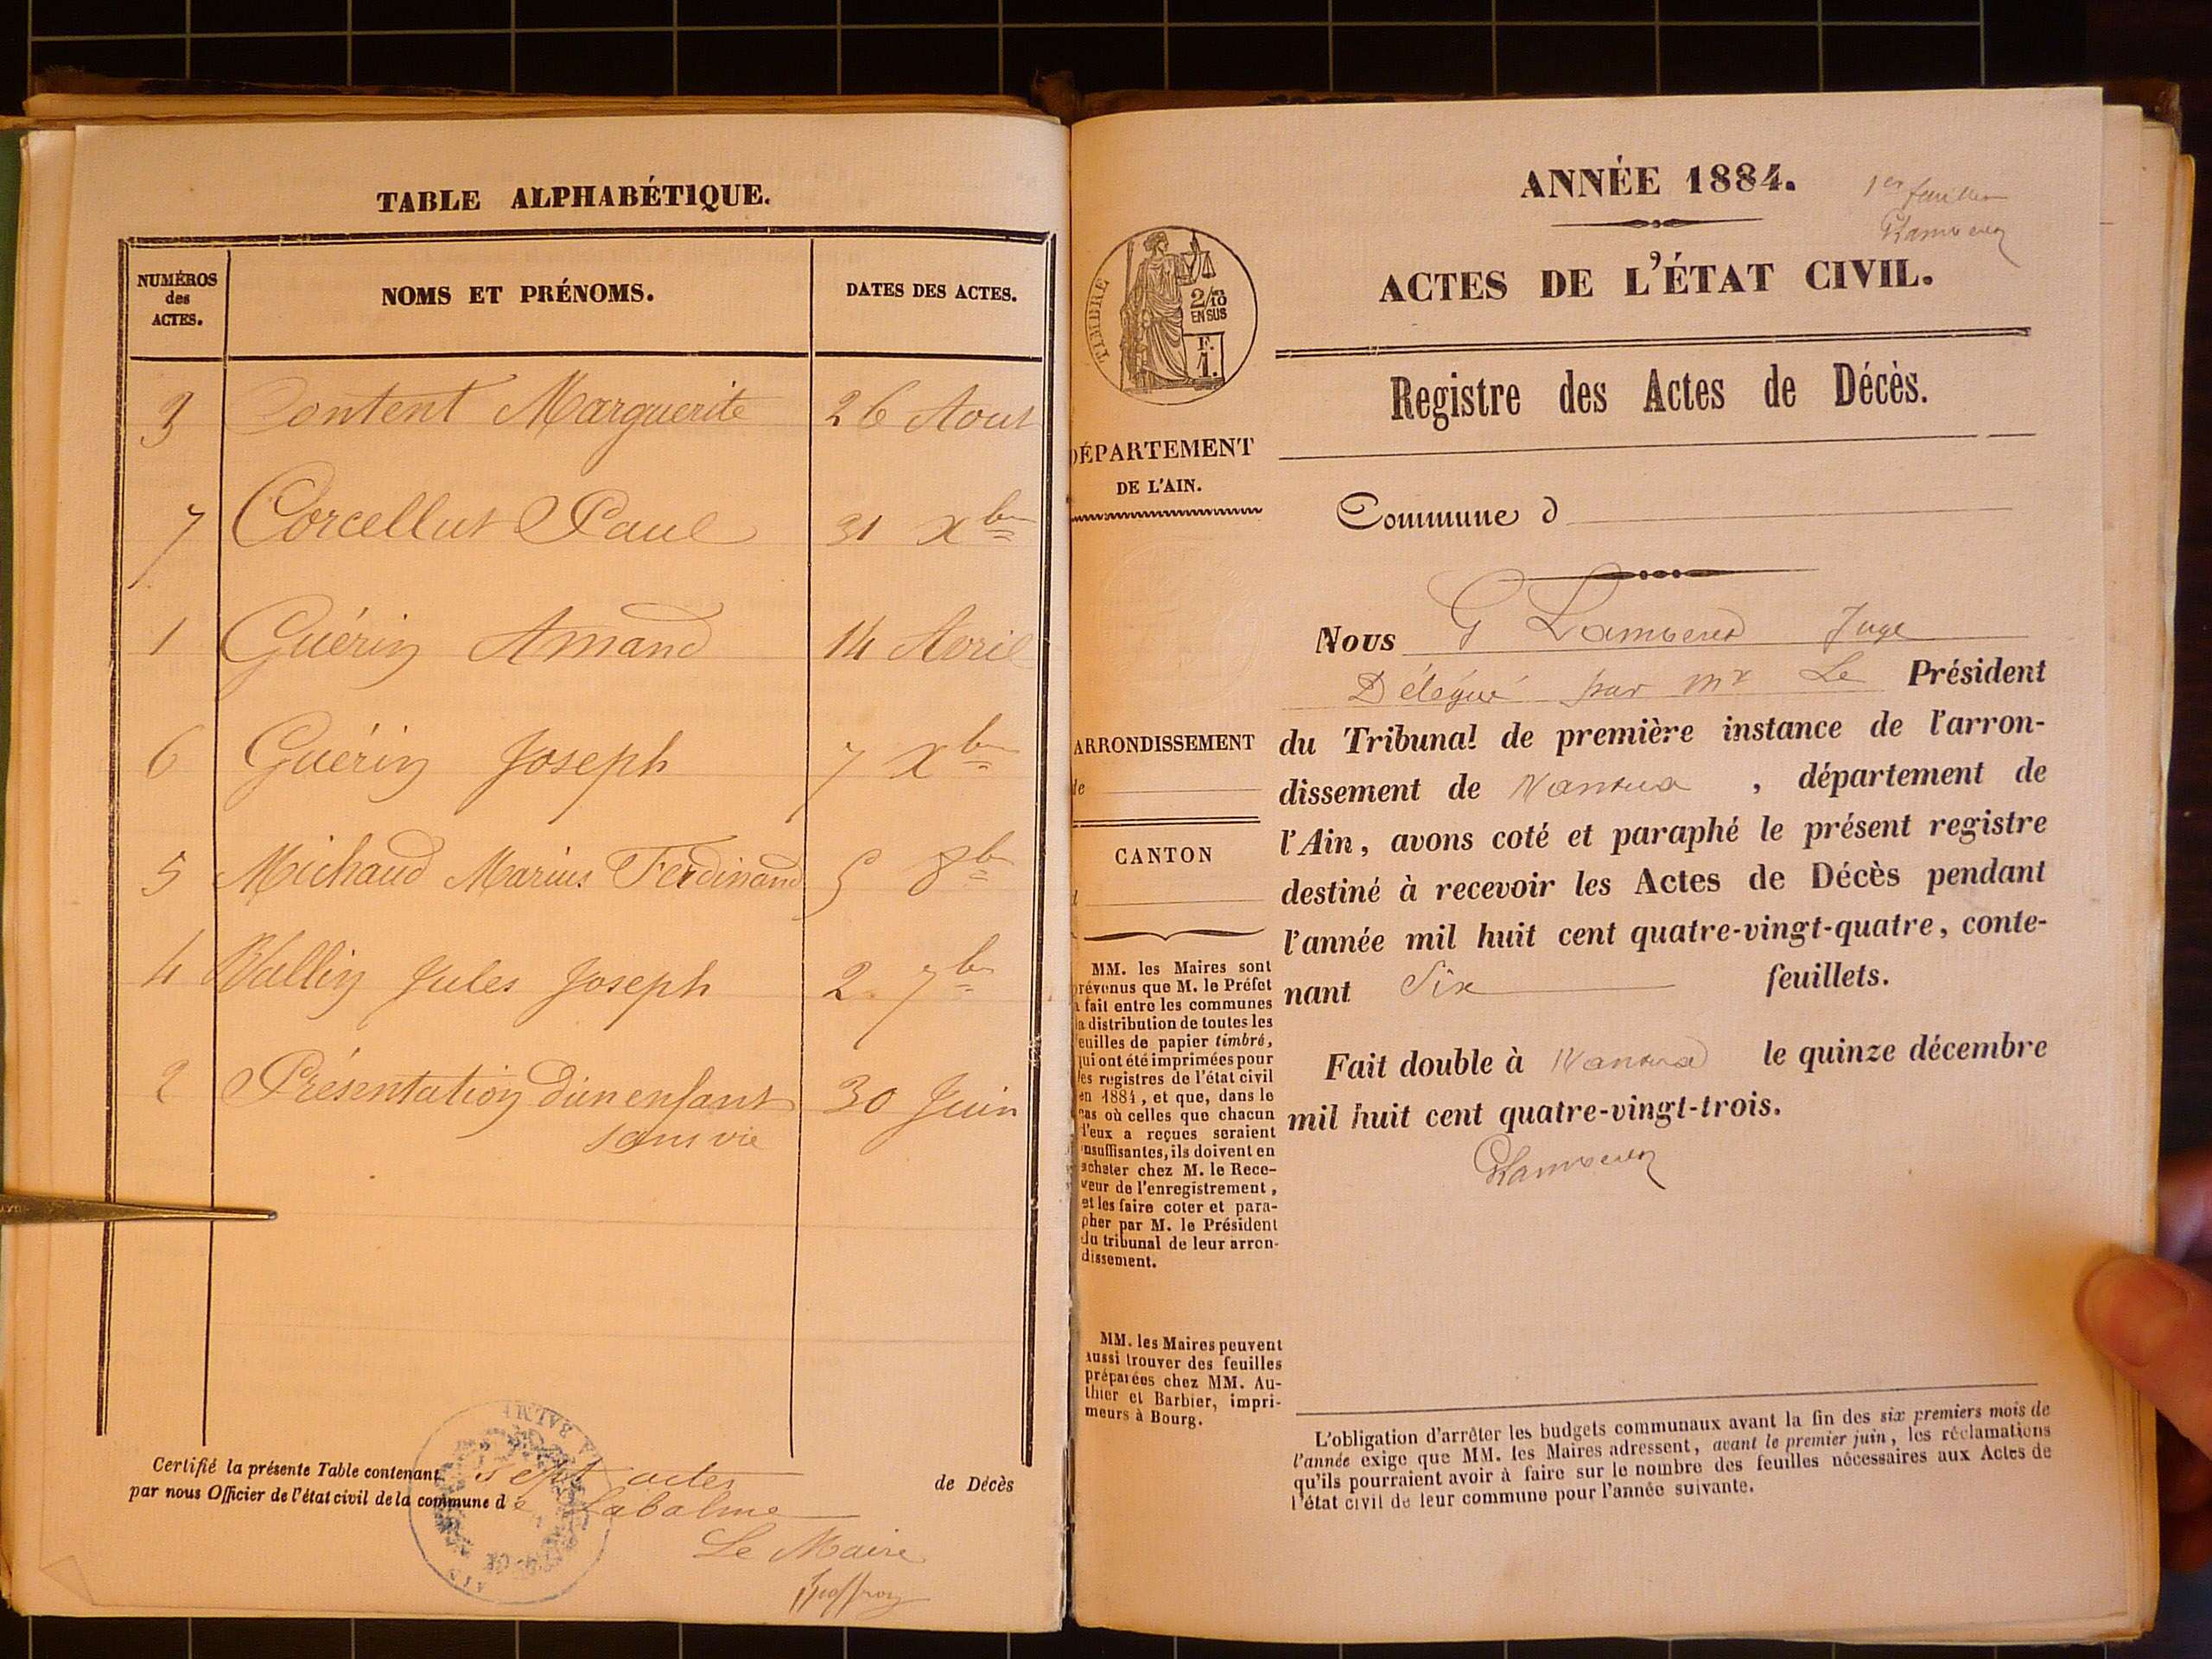 TABLE ALPHABÉTIQUE.
NUMÉROS
des
ACTES.
NOMS ET PRÉNOMS.
DATES DES ACTES.
3 Content Marguerite 26 Aout
7 Corcellut Paul 31 Xbre
1 Guérin Amand 14 Avril
6 Guérin Joseph 7 Xbre
5 Michaud Marius Ferdinand 5 8bre
4 Vallin Jules Joseph 2 7bre
2 Présentation d'un enfant 30 Juin
sans vie
Certifié la présente Table contenant sept actes de Décès
par nous Officier de l'état civil de la commune de Labalme
Le Maire
ANNÉE 1884.
1er feuillet
ACTES DE L'ÉTAT CIVIL.
TIMBRE
2/10
EN SUS
F.
1.
Registre des Actes de Décès.
DÉPARTEMENT
DE L'AIN.
Commune d
ARRONDISSEMENT
de
CANTON
d
MM. les Maires sont
prévenus que M. le Préfet
a fait entre les communes
la distribution de toutes les
feuilles de papier timbré,
qui ont été imprimées pour
les registres de l'état civil
en 1884, et que, dans le
cas où celles que chacun
d'eux a reçues seraient
insuffisantes, ils doivent en
acheter chez M. le Rece-
veur de l'enregistrement,
et les faire coter et para-
pher par M. le Président
du tribunal de leur arron-
dissement.
MM. les Maires peuvent
aussi trouver des feuilles
préparées chez MM. Au-
thier et Barbier, impri-
meurs à Bourg.
Nous G Lambert Juge
Délégué par Mr Le Président
du Tribunal de première instance de l'arron-
dissement de Nantua, département de
l'Ain, avons coté et paraphé le présent registre
destiné à recevoir les Actes de Décès pendant
l'année mil huit cent quatre-vingt-quatre, conte-
nant Six feuillets.
Fait double à Nantua le quinze décembre
mil huit cent quatre-vingt-trois.
L'obligation d'arrêter les budgets communaux avant la fin des six premiers mois de
l'année exige que MM. les Maires adressent, avant le premier juin, les réclamations
qu'ils pourraient avoir à faire sur le nombre des feuilles nécessaires aux Actes de
l'état civil de leur commune pour l'année suivante.